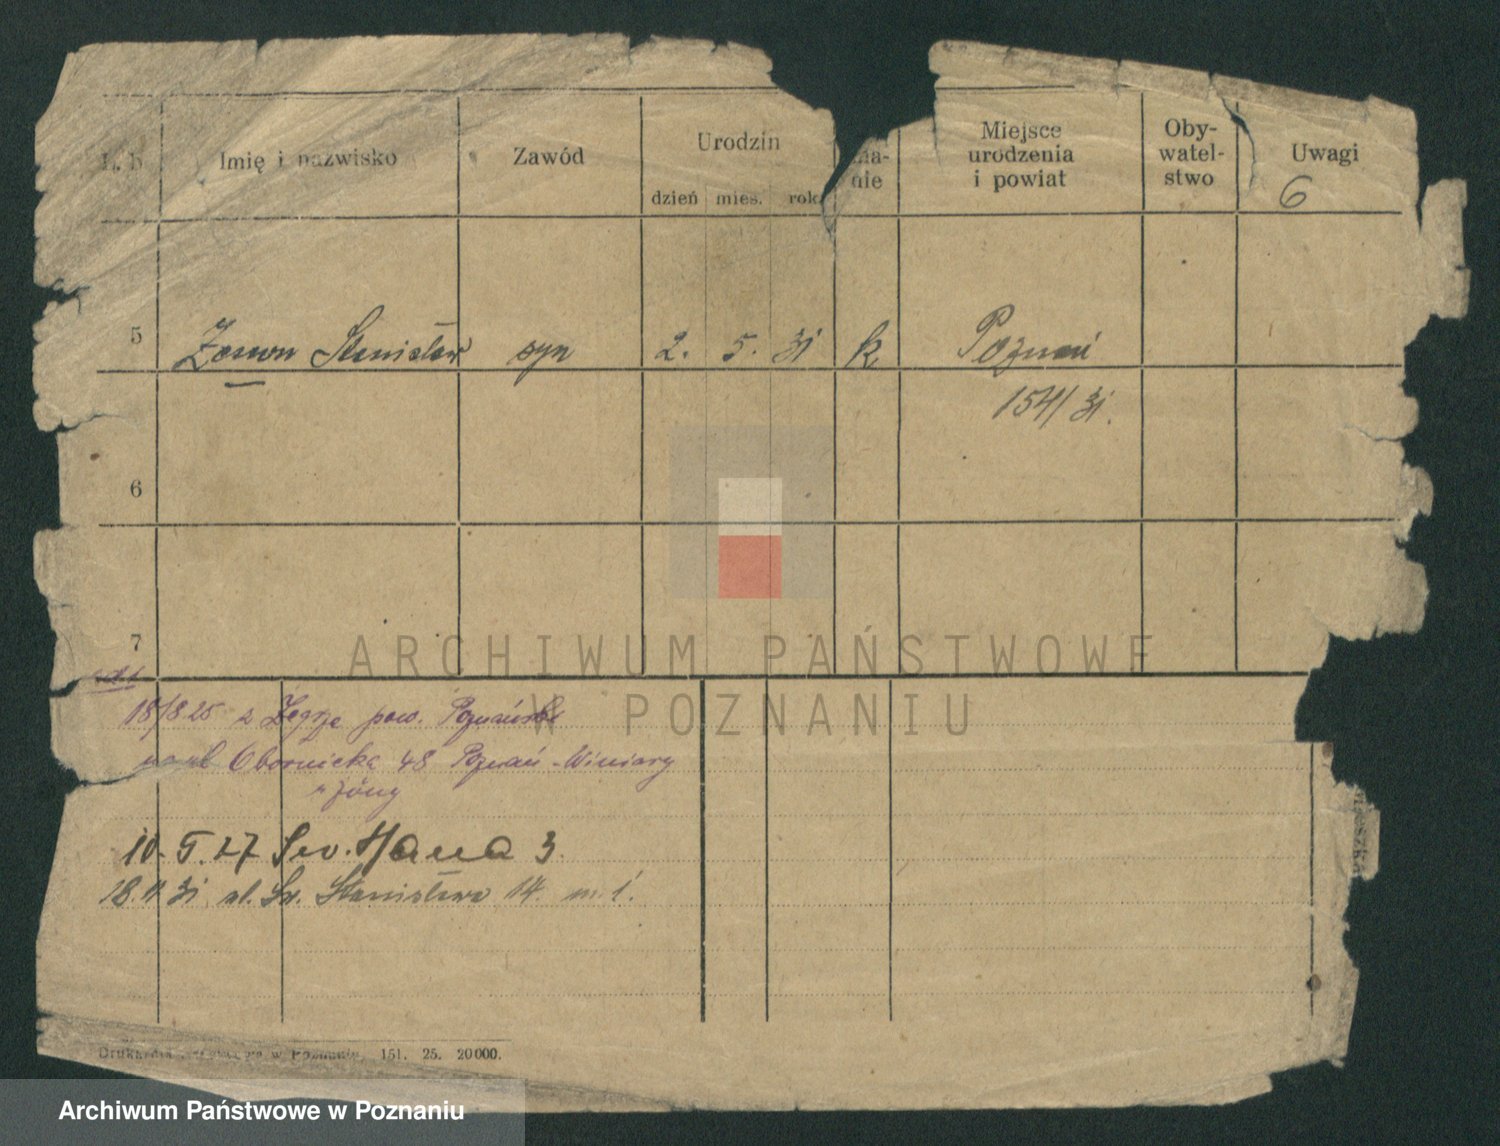 L. b. Imię i nazwisko Zawód Urodzin Miejsce urodzenia i powiat Oby- watel- stwo Uwagi
dzień mies. rok nie
6
5 Stanisław syn 2. 5. 31 k Poznań
154/31.
6
7
ARCHIWUM PAŃSTWOWE
W POZNANIU
18/8 25 z Żegrze pow. Poznański
Obornicka 48 Poznań-Winiary
10. 5. 27 Św. 3
18. 11 31 ul. Św. Stanisława 14. m. 1.
Drukarnia w Poznaniu, 151. 25. 20000.
Archiwum Państwowe w Poznaniu